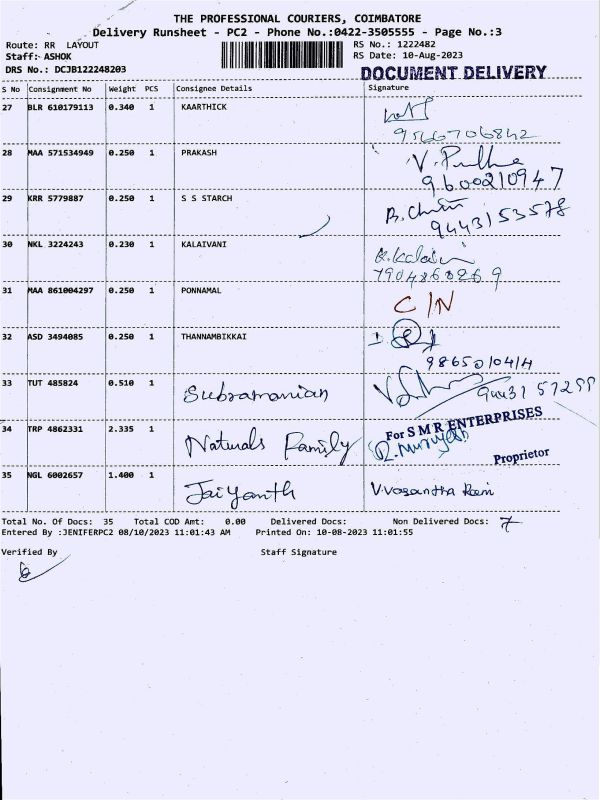 THE PROFESSIONAL COURIERS, COIMBATORE
Delivery Runsheet - PC2 - Phone No.:0422-3505555 - Page No.:3
Route: RR LAYOUT
Staff:- ASHOK
DRS No.: DCJB122248203
RS No.: 1222482
RS Date: 10-Aug-2023
DOCUMENT DELIVERY
S No Consignment No Weight PCS Consignee Details Signature
27 BLR 610179113 0.340 1 KAARTHICK
9566706842
28 MAA 571534949 0.250 1 PRAKASH
9600210947
29 KRR 5779887 0.250 1 S S STARCH
9443153578
30 NKL 3224243 0.230 1 KALAIVANI
7904860269
31 MAA 861004297 0.250 1 PONNAMAL C/N
32 ASD 3494085 0.250 1 THANNAMBIKKAI
33 TUT 485824 0.510 1 Subramanian
34 TRP 4862331 2.335 1 Naturals Family For S M R ENTERPRISES
R. Murugan
Proprietor
35 NGL 6002657 1.400 1 Jaiyanth V.Vasantha Rani
Total No. Of Docs: 35 Total COD Amt: 0.00 Delivered Docs: Non Delivered Docs: 7
Entered By :JENIFERPC2 08/10/2023 11:01:43 AM Printed On: 10-08-2023 11:01:55
Verified By Staff Signature